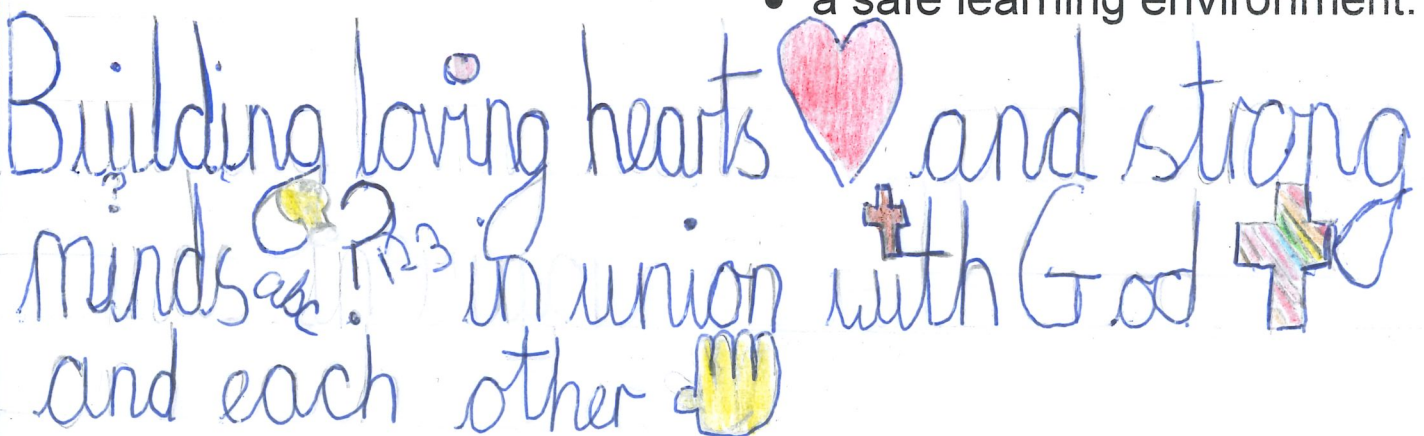 • a safe learning environment.
Building loving hearts and strong
minds abc ? 123 in union with God
and each other